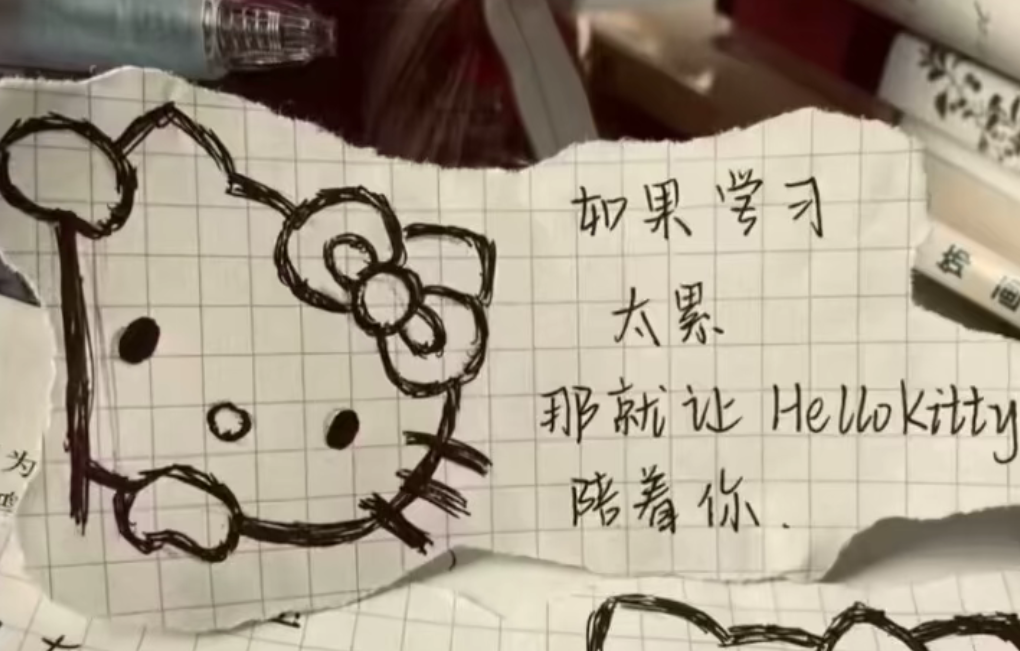 如果学习
太累
那就让 HelloKitty
陪着你.
为